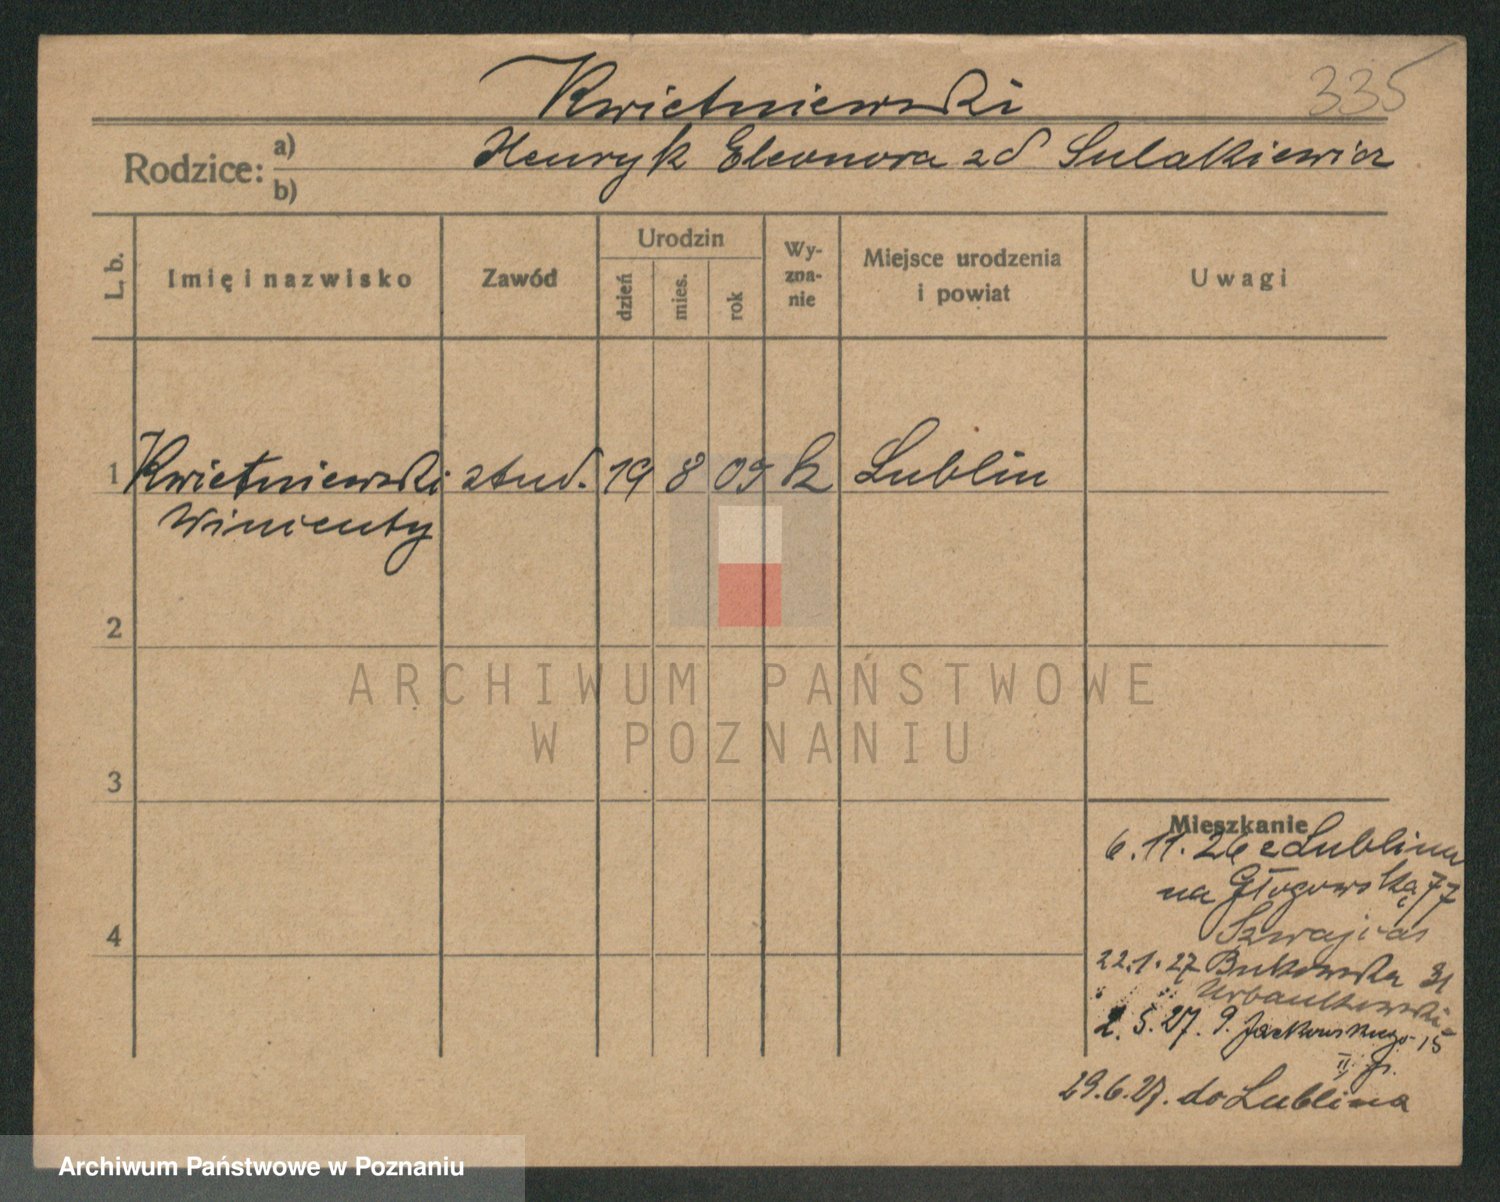 335
Kwietniewski
Rodzice: a) b)
Henryk Eleonora zd Sulakiewicz
L. b.
Imię i nazwisko
Zawód
Urodzin
dzień
mies.
rok
Wy-
zna-
nie
Miejsce urodzenia
i powiat
Uwagi
1 Kwietniewski stud. 19 8 09 k Lublin
Winicenty
2
3
4
ARCHIWUM PAŃSTWOWE
W POZNANIU
Mieszkanie
6.11.26 z Lublina
na Głogowską 77
Szwajcas
22.1.27 Bukowska 31
Urbankowski
2.5.27. 9. Jackowskiego 15
II p.
29.6.27. do Lublina
Archiwum Państwowe w Poznaniu